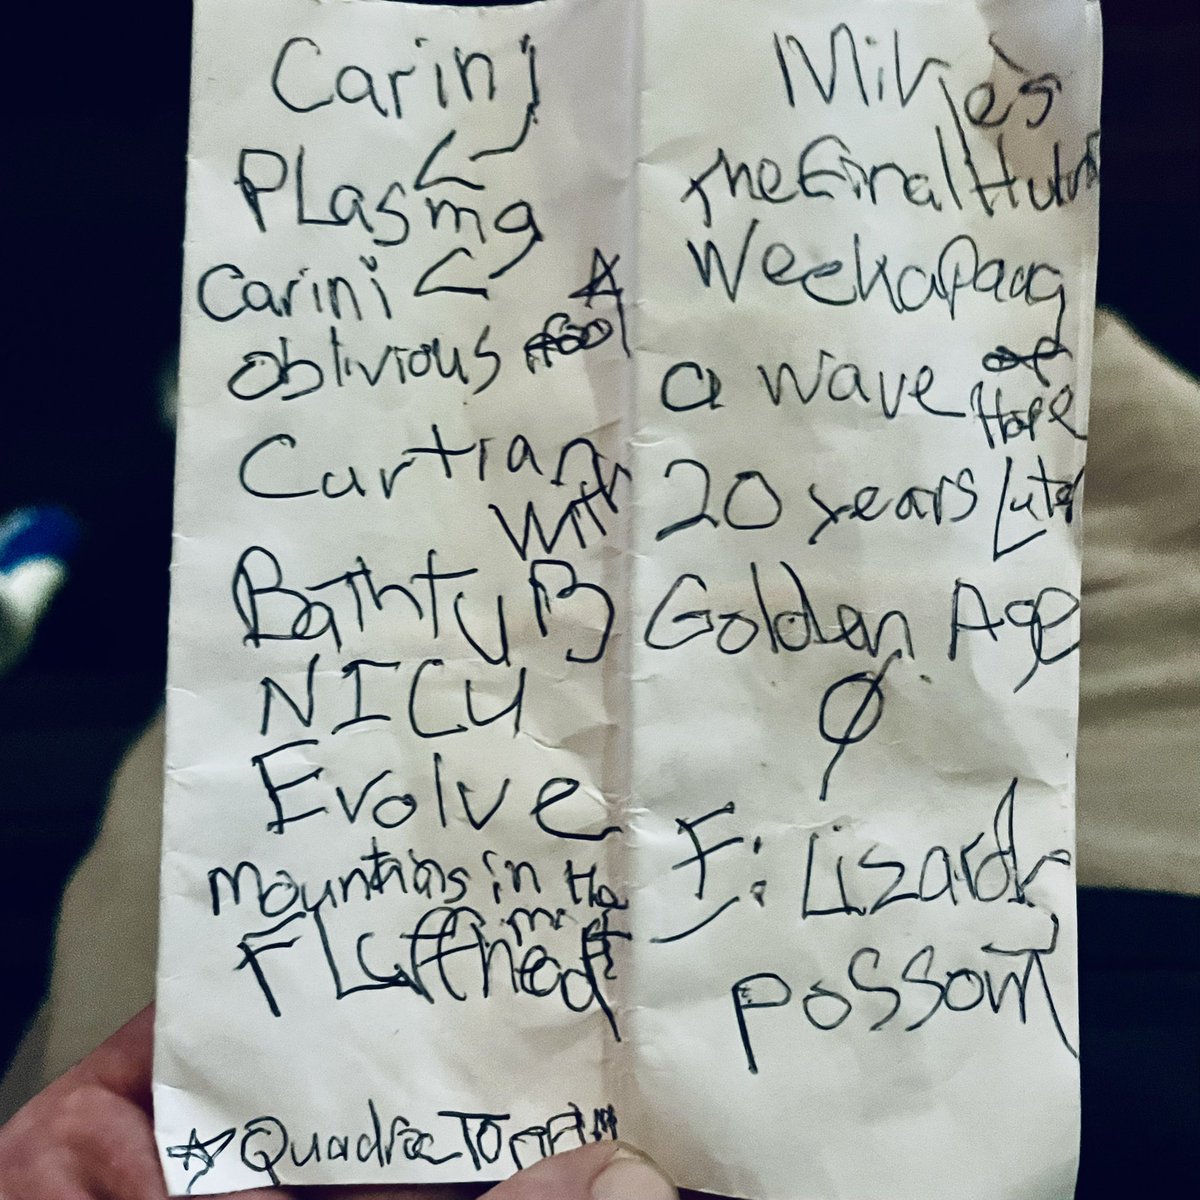 Carini
Plasma
Carini
Oblivious fool
Curtain
With
BathtuB
NICU
Evolve
mountains in the
mist
FLuffhead
Quadrophonic
Mike's
The Final Hurrah
Weekapaug
a wave of
Hope
20 years Later
Golden Age
E: Lizards
possom